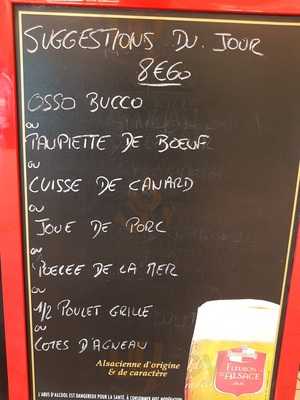 SUGGESTIONS DU. JOUR
8€60
OSSO BUCCO
ou
PAUPIETTE DE BOEUF
ou
CUISSE DE CANARD
ou
JOUE DE PORC
ou
POELEE DE LA MER
ou
1/2 POULET GRILLE
ou
COTES D'AGNEAU
Alsacienne d'origine
& de caractère
FLEURON
D'ALSACE
L'ABUS D'ALCOOL EST DANGEREUX POUR LA SANTÉ. À CONSOMMER AVEC MODÉRATION